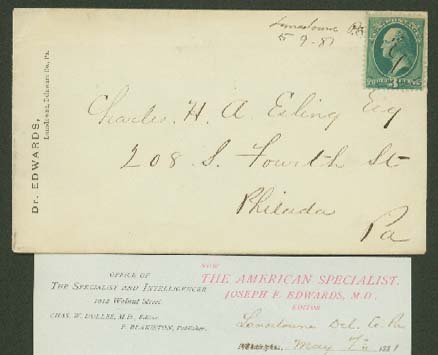 Lansdowne Pa
5-9-81
U.S. POSTAGE
Dr. EDWARDS,
Lansdowne, Delaware Co., Pa.
Charles. H. A. Esling Esq
208 S. Fourth St
Philada
Pa
OFFICE OF
THE SPECIALIST AND INTELLIGENCER
1012 Walnut Street
CHAS. W. DULLES, M.D., Editor
P. BLAKISTON, Publisher.
NOW
THE AMERICAN SPECIALIST.
JOSEPH F. EDWARDS, M.D.
EDITOR
Lansdowne Del. Co. Pa
May 7th 1881